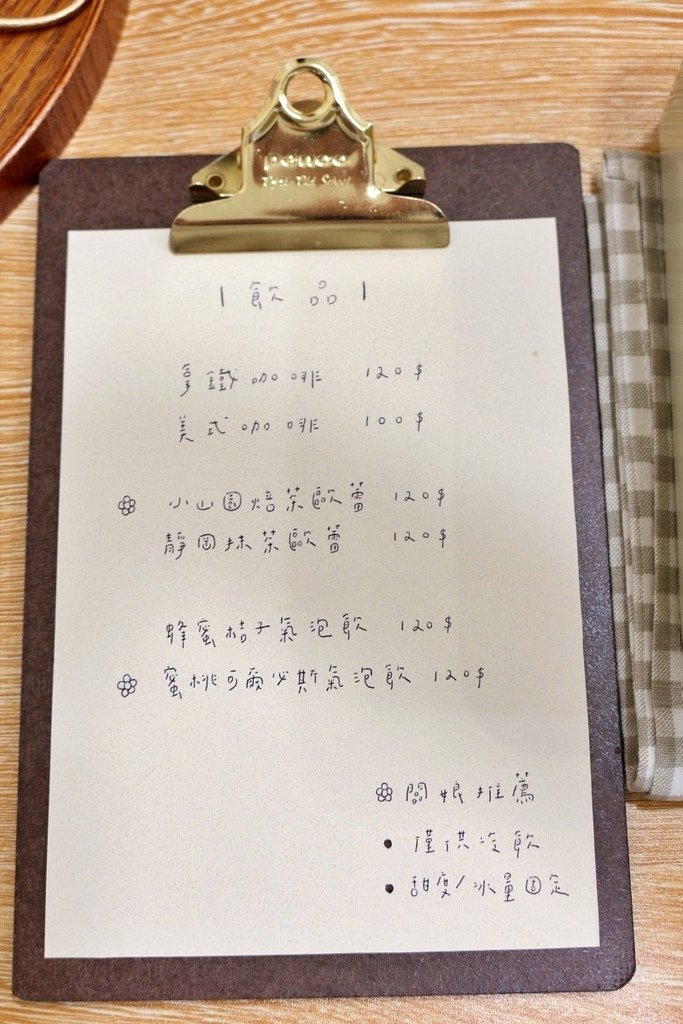 penco
| 飲品 |
拿鐵咖啡 120$
美式咖啡 100$
小山園焙茶歐蕾 120$
靜岡抹茶歐蕾 120$
蜂蜜桔子氣泡飲 120$
蜜桃可爾必斯氣泡飲 120$
闆娘推薦
• 僅供冷飲
• 甜度/冰量固定